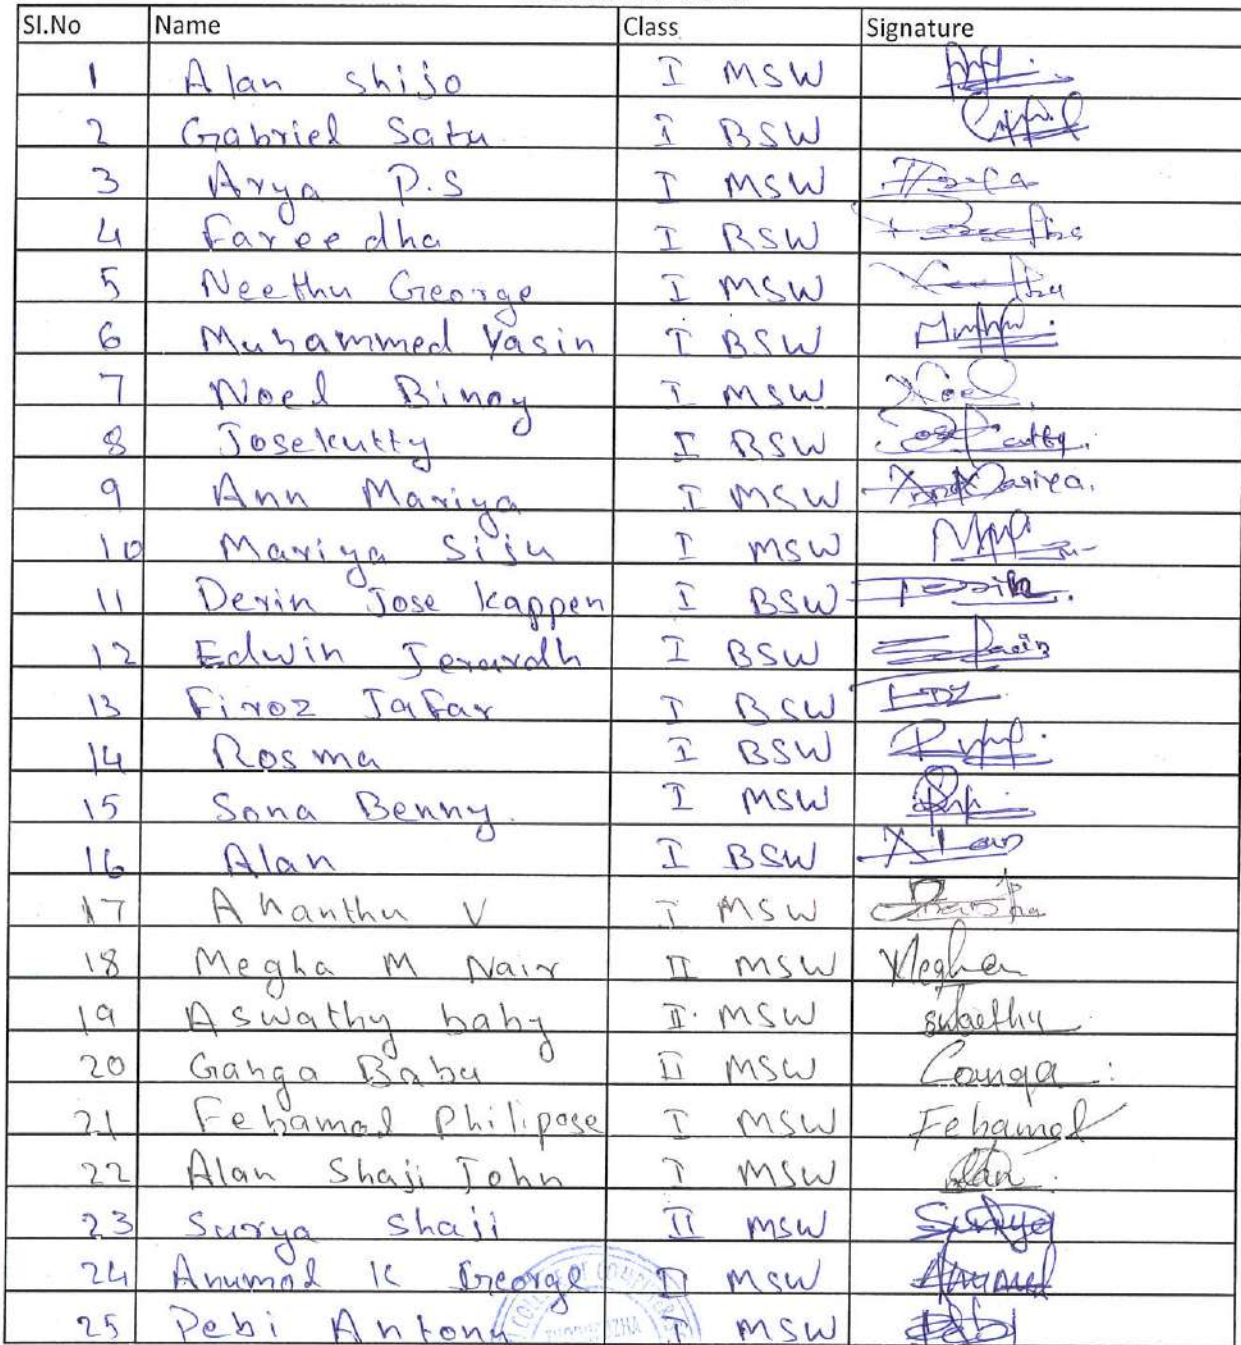 Sl.No Name Class Signature
1 Alan Shijo I MSW
2 Gabriel Satu I BSW
3 Arya P.S I MSW
4 Fareedha I BSW
5 Neethu George I MSW
6 Muhammed Yasin I BSW
7 Noel Binoy I MSW Noel
8 Josekutty I BSW Josekutty.
9 Ann Mariya I MSW Ann Mariya.
10 Mariya Siju I MSW
11 Derin Jose Kappen I BSW
12 Edwin Jerardh I BSW
13 Firoz Jafar I BSW
14 Rosma I BSW
15 Sona Benny. I MSW
16 Alan I BSW Alan
17 Ananthu V I MSW
18 Megha M Nair II MSW Megha
19 Aswathy baby II. MSW
20 Ganga Babu II MSW Ganga
21 Febamol Philipose I MSW Febamol
22 Alan Shaji John I MSW Alan.
23 Surya Shaji II MSW Surya
24 Anumol K George II MSW Anumol
25 Pebi Antony I MSW